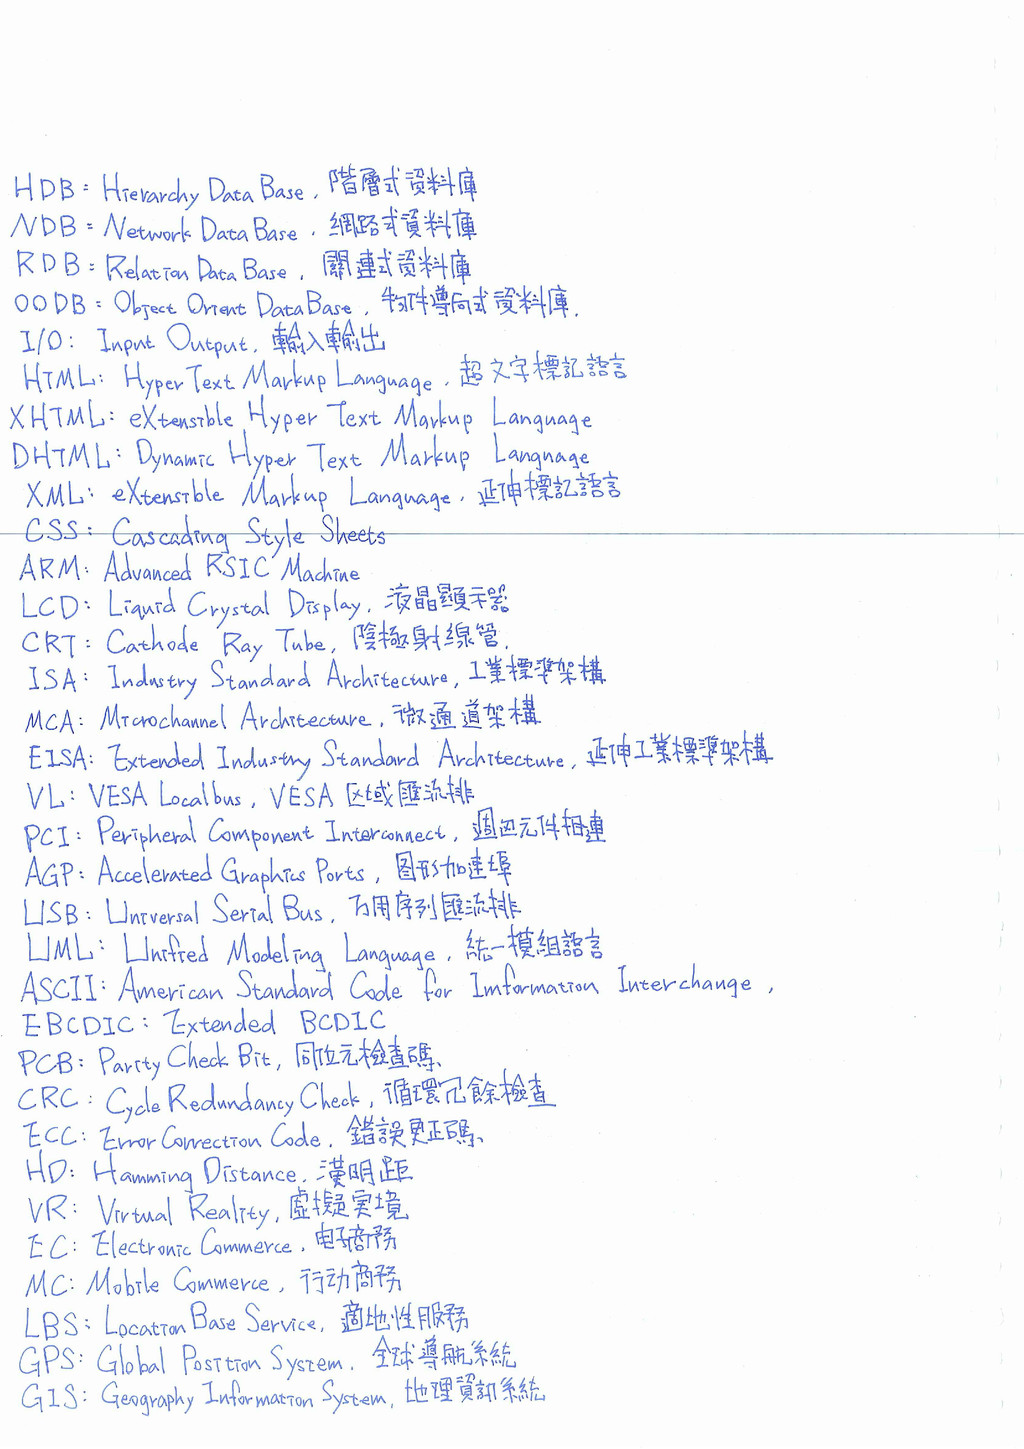 HDB: Hierarchy Data Base, 階層式資料庫
NDB: Network Data Base, 網路式資料庫
RDB: Relation Data Base, 關連式資料庫
OODB: Object Orient DataBase, 物件導向式資料庫.
I/O: Input Output, 輸入輸出
HTML: Hyper Text Markup Language, 超文字標記語言
XHTML: eXtensible Hyper Text Markup Language
DHTML: Dynamic Hyper Text Markup Language
XML: eXtensible Markup Language, 延伸標記語言
CSS: Cascading Style Sheets
ARM: Advanced RSIC Machine
LCD: Liquid Crystal Display, 液晶顯示器
CRT: Cathode Ray Tube, 陰極射線管.
ISA: Industry Standard Architecture, 工業標準架構
MCA: Microchannel Architecture, 微通道架構
EISA: Extended Industry Standard Architecture, 延伸工業標準架構
VL: VESA Localbus, VESA 区域匯流排
PCI: Peripheral Component Interconnect, 週边元件相連
AGP: Accelerated Graphics Ports, 图形加速埠
USB: Universal Serial Bus, 万用序列匯流排
UML: Unified Modeling Language, 統一模組語言
ASCII: American Standard Code for Imformation Interchange,
EBCDIC: Extended BCDIC
PCB: Parity Check Bit, 同位元檢查碼、
CRC: Cycle Redundancy Check, 循環冗餘檢查
ECC: Error Correction Code, 錯誤更正碼、
HD: Hamming Distance, 漢明距
VR: Virtual Reality, 虛擬実境
EC: Electronic Commerce, 电子商務
MC: Mobile Commerce, 行动商務
LBS: Location Base Service, 適地性服務
GPS: Global Position System, 全球導航系統
GIS: Geography Information System, 地理資訊系統